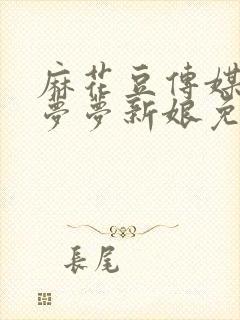 麻花豆傳媒
夢夢新娘免
長尾